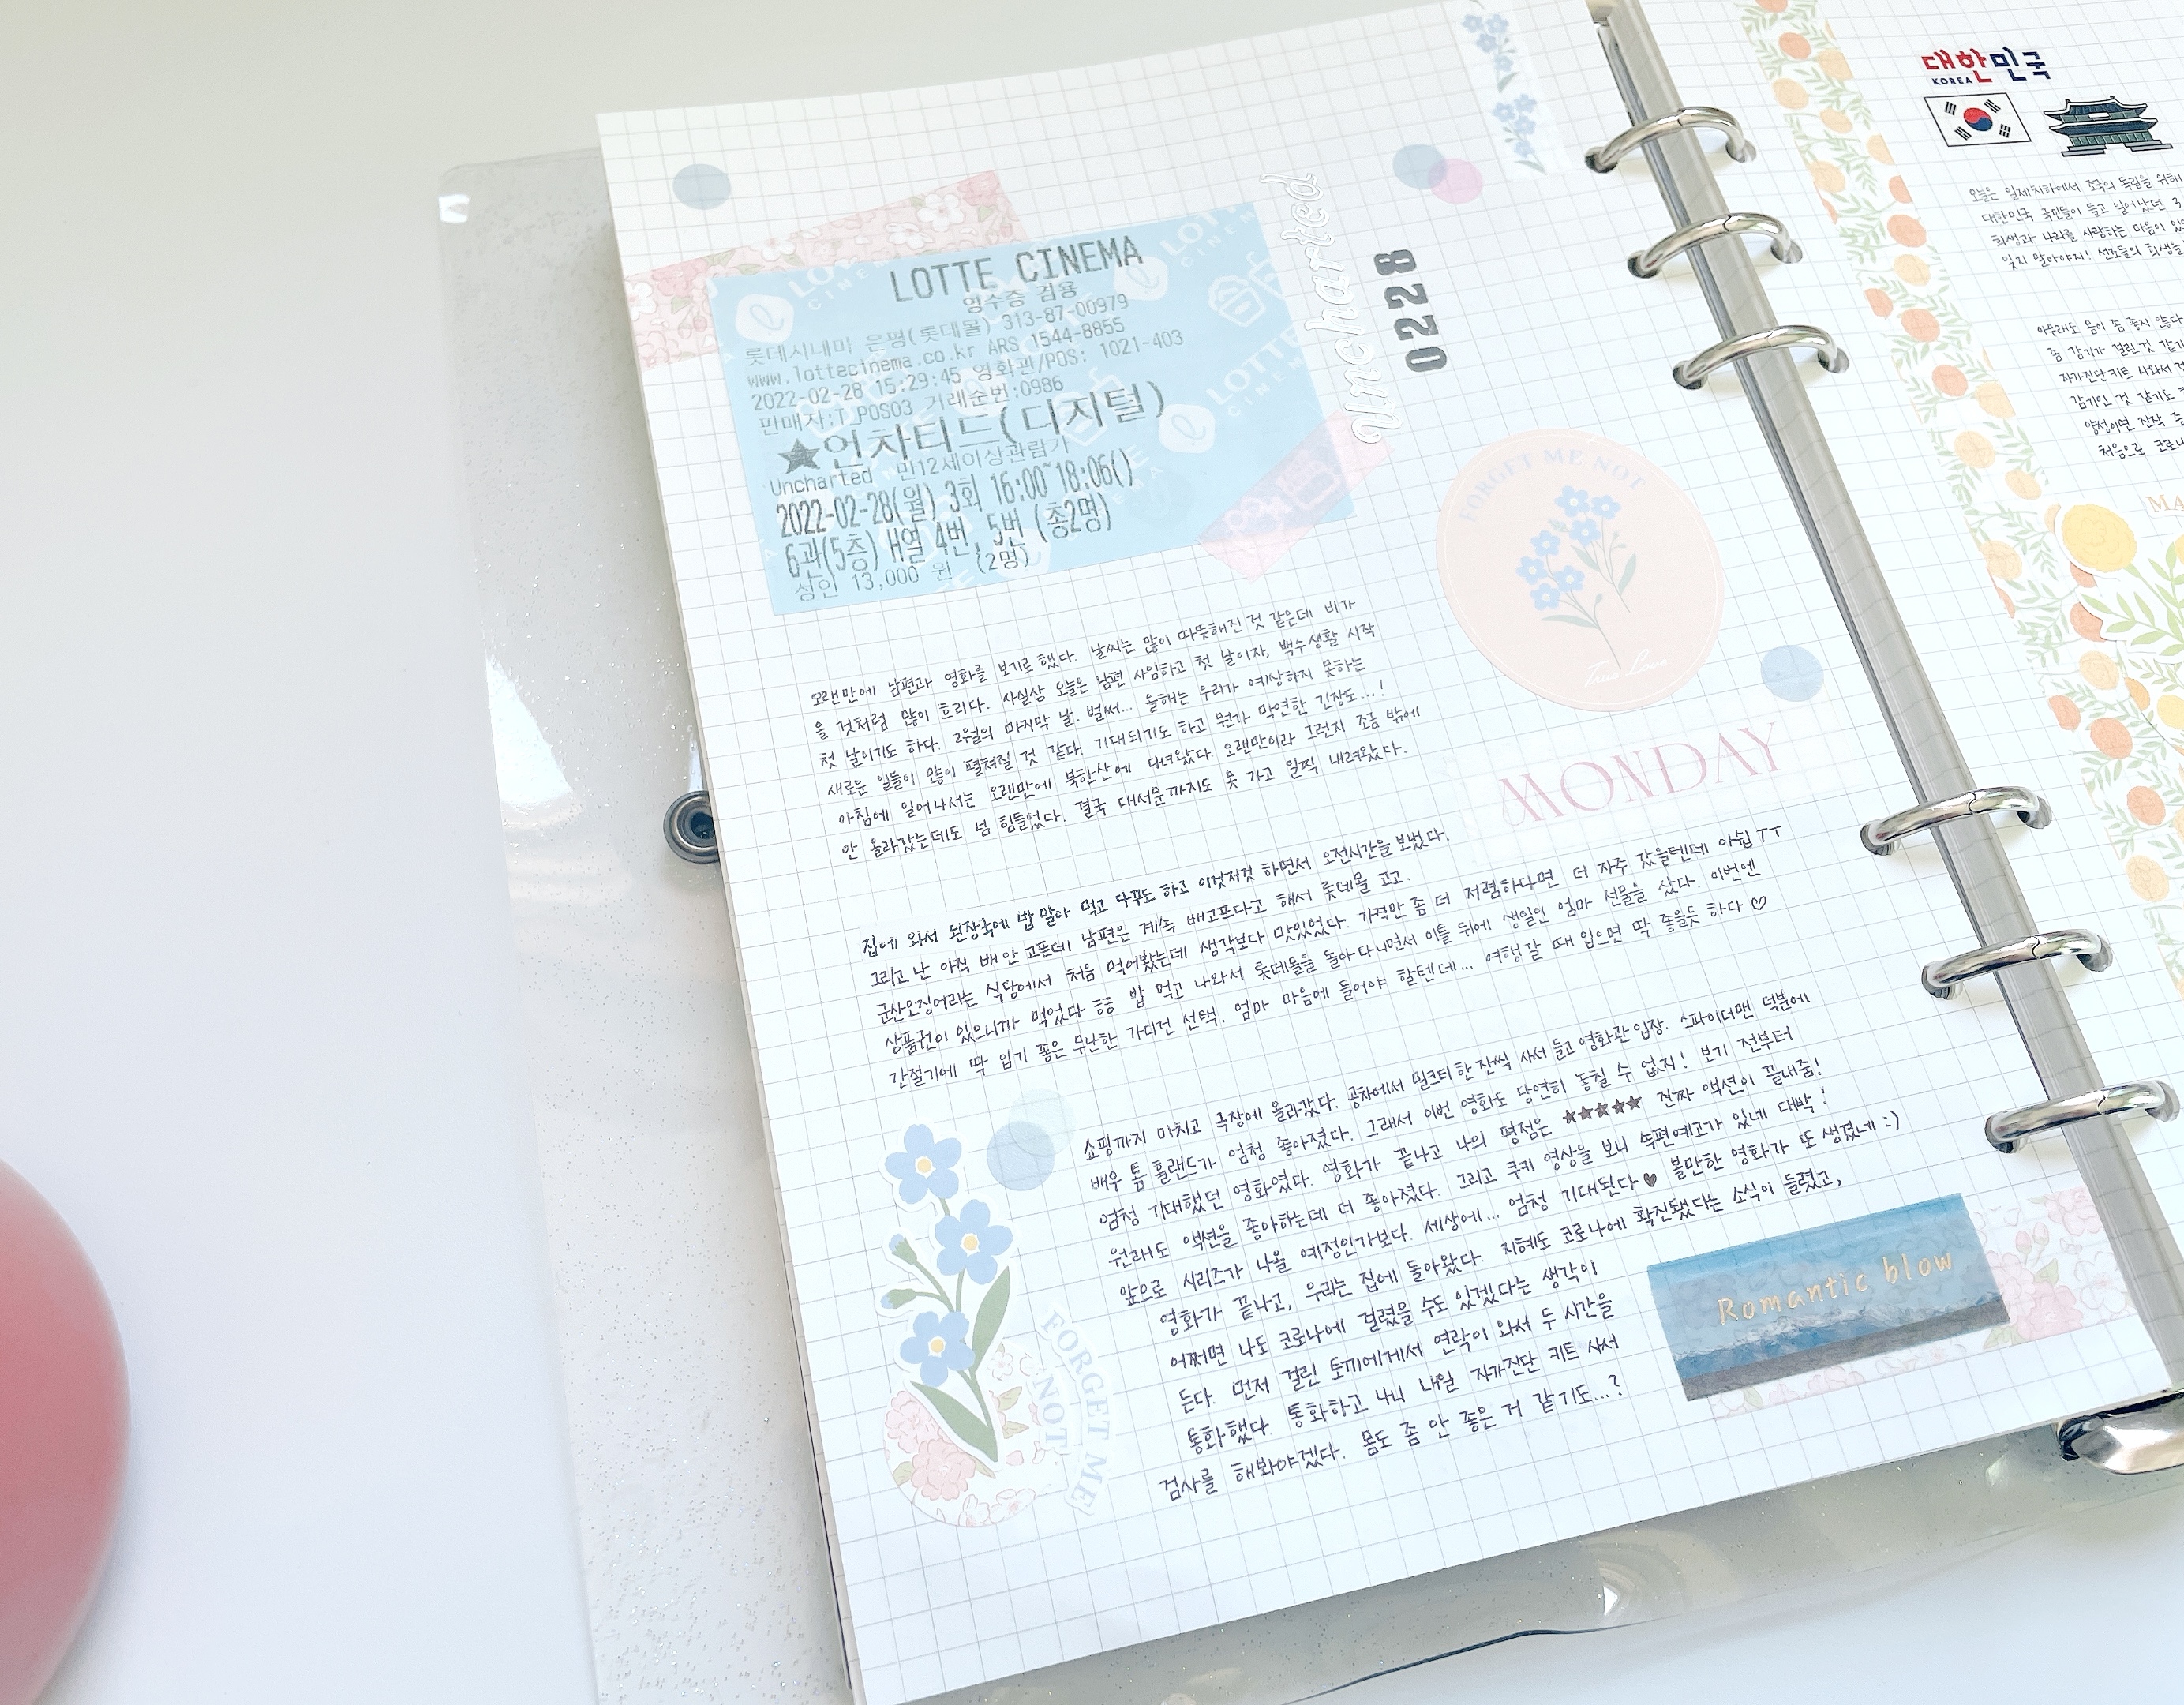 LOTTE CINEMA
영수증 겸용
롯데시네마 은평(롯데몰) 313-87-00979
www.lottecinema.co.kr ARS 1544-8855
2022-02-28 15:29:45 영화관/POS: 1021-403
판매자:T_POS03 거래순번:0986
★언차티드(디지털)
Uncharted 만12세이상관람가
2022-02-28(월) 3회 16:00~18:06()
6관(5층) H열 4번, 5번 (총2명)
성인 13,000 원 (2명)
Uncharted
0228
FORGET ME NOT
True Love
MONDAY
오랜만에 남편과 영화를 보기로 했다. 날씨는 많이 따뜻해진 것 같은데 비가
올 것처럼 많이 흐리다. 사실상 오늘은 남편 사임하고 첫 날이자, 백수생활 시작
첫 날이기도 하다. 2월의 마지막 날. 벌써... 올해는 우리가 예상하지 못하는
새로운 일들이 많이 펼쳐질 것 같다. 기대되기도 하고 뭔가 막연한 긴장도...!
아침에 일어나서는 오랜만에 북한산에 다녀왔다. 오랜만이라 그런지 조금 밖에
안 올라갔는데도 넘 힘들었다. 결국 대서문까지도 못 가고 일찍 내려왔다.
집에 와서 된장국에 밥 말아 먹고 다꾸도 하고 이것저것 하면서 오전시간을 보냈다.
그리고 난 아직 배 안 고픈데 남편은 계속 배고프다고 해서 롯데몰 고고.
군산오징어라는 식당에서 처음 먹어봤는데 생각보다 맛있었다. 가격만 좀 더 저렴하다면 더 자주 갔을텐데 아쉽 ㅜㅜ
상품권이 있으니까 먹었다 ㅎㅎ 밥 먹고 나와서 롯데몰을 돌아다니면서 이틀 뒤에 생일인 엄마 선물을 샀다. 이번엔
간절기에 딱 입기 좋은 무난한 가디건 선택. 엄마 마음에 들어야 할텐데... 여행갈 때 입으면 딱 좋을듯 하다 ♡
쇼핑까지 마치고 극장에 올라갔다. 공차에서 밀크티 한 잔씩 사서 들고 영화관 입장. 스파이더맨 덕분에
배우 톰 홀랜드가 엄청 좋아졌다. 그래서 이번 영화도 당연히 놓칠 수 없지! 보기 전부터
엄청 기대했던 영화였다. 영화가 끝나고 나의 평점은 ★★★★★ 진짜 액션이 끝내줌!
원래도 액션을 좋아하는데 더 좋아졌다. 그리고 쿠키 영상을 보니 속편예고가 있네 대박!
앞으로 시리즈가 나올 예정인가보다. 세상에... 엄청 기대된다♥ 볼만한 영화가 또 생겼네 :)
영화가 끝나고, 우리는 집에 돌아왔다. 지혜도 코로나에 확진됐다는 소식이 들렸고,
어쩌면 나도 코로나에 걸렸을 수도 있겠다는 생각이
든다. 먼저 걸린 토끼에게서 연락이 와서 두 시간을
통화했다. 통화하고 나니 내일 자가진단 키트 사서
검사를 해봐야겠다. 몸도 좀 안 좋은 거 같기도...?
FORGET ME
NOT
Romantic blow
대한민국
KOREA
오늘은 일제치하에서 조국의 독립을 위해
대한민국 국민들이 들고 일어났던
희생과 나라를 사랑하는 마음이
잊지 말아야지! 선조들의 희생을
아무래도 몸이 좀 좋지 않다
좀 감기가 걸린 것 같기
자가진단키트 사와서
감기인 것 같기도
양성이면 진작
처음으로 코로나